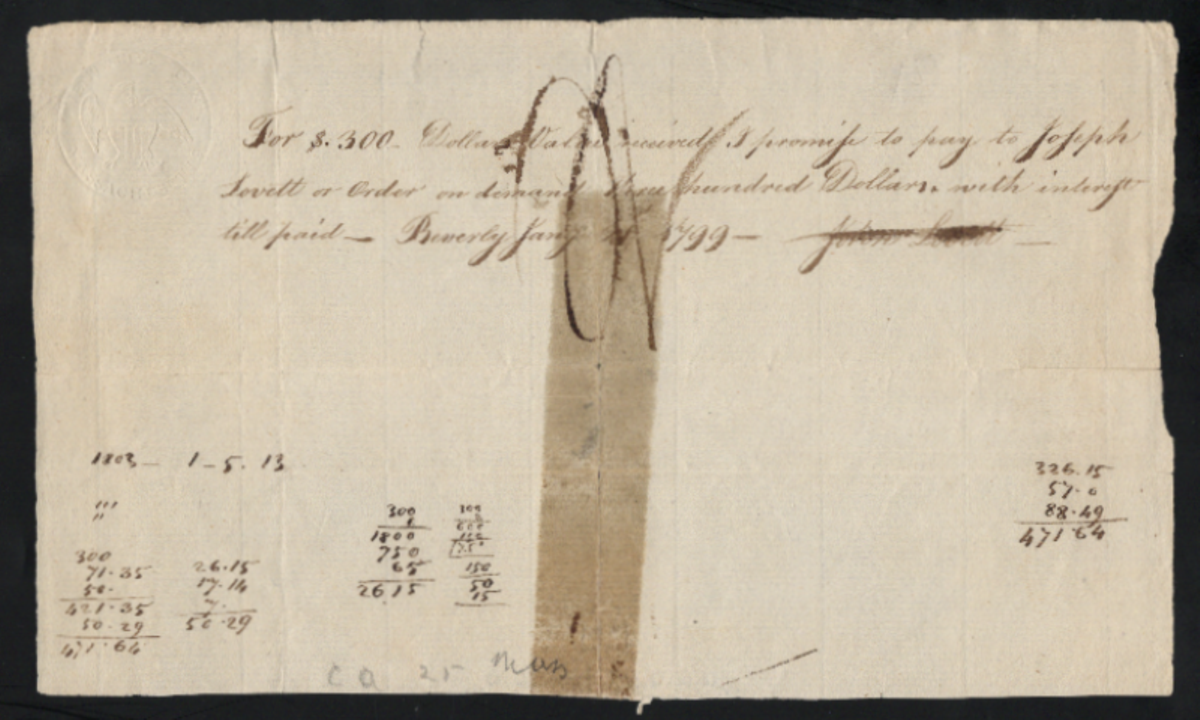 For $.300- Dollars Value received I promise to pay to Joseph
Lovett or Order on demand three hundred Dollars. with interest
till paid — Beverly Jany 1799 — John Lovett —
1803 — 1 - 5. 13
"'
"
300
71.35
50.
421.35
50.29
471.64
26.15
17.14
7.
50.29
300
1800
750
65
26.15
150
50
15
326.15
57.0
88.49
471.64
CA 25 Mass